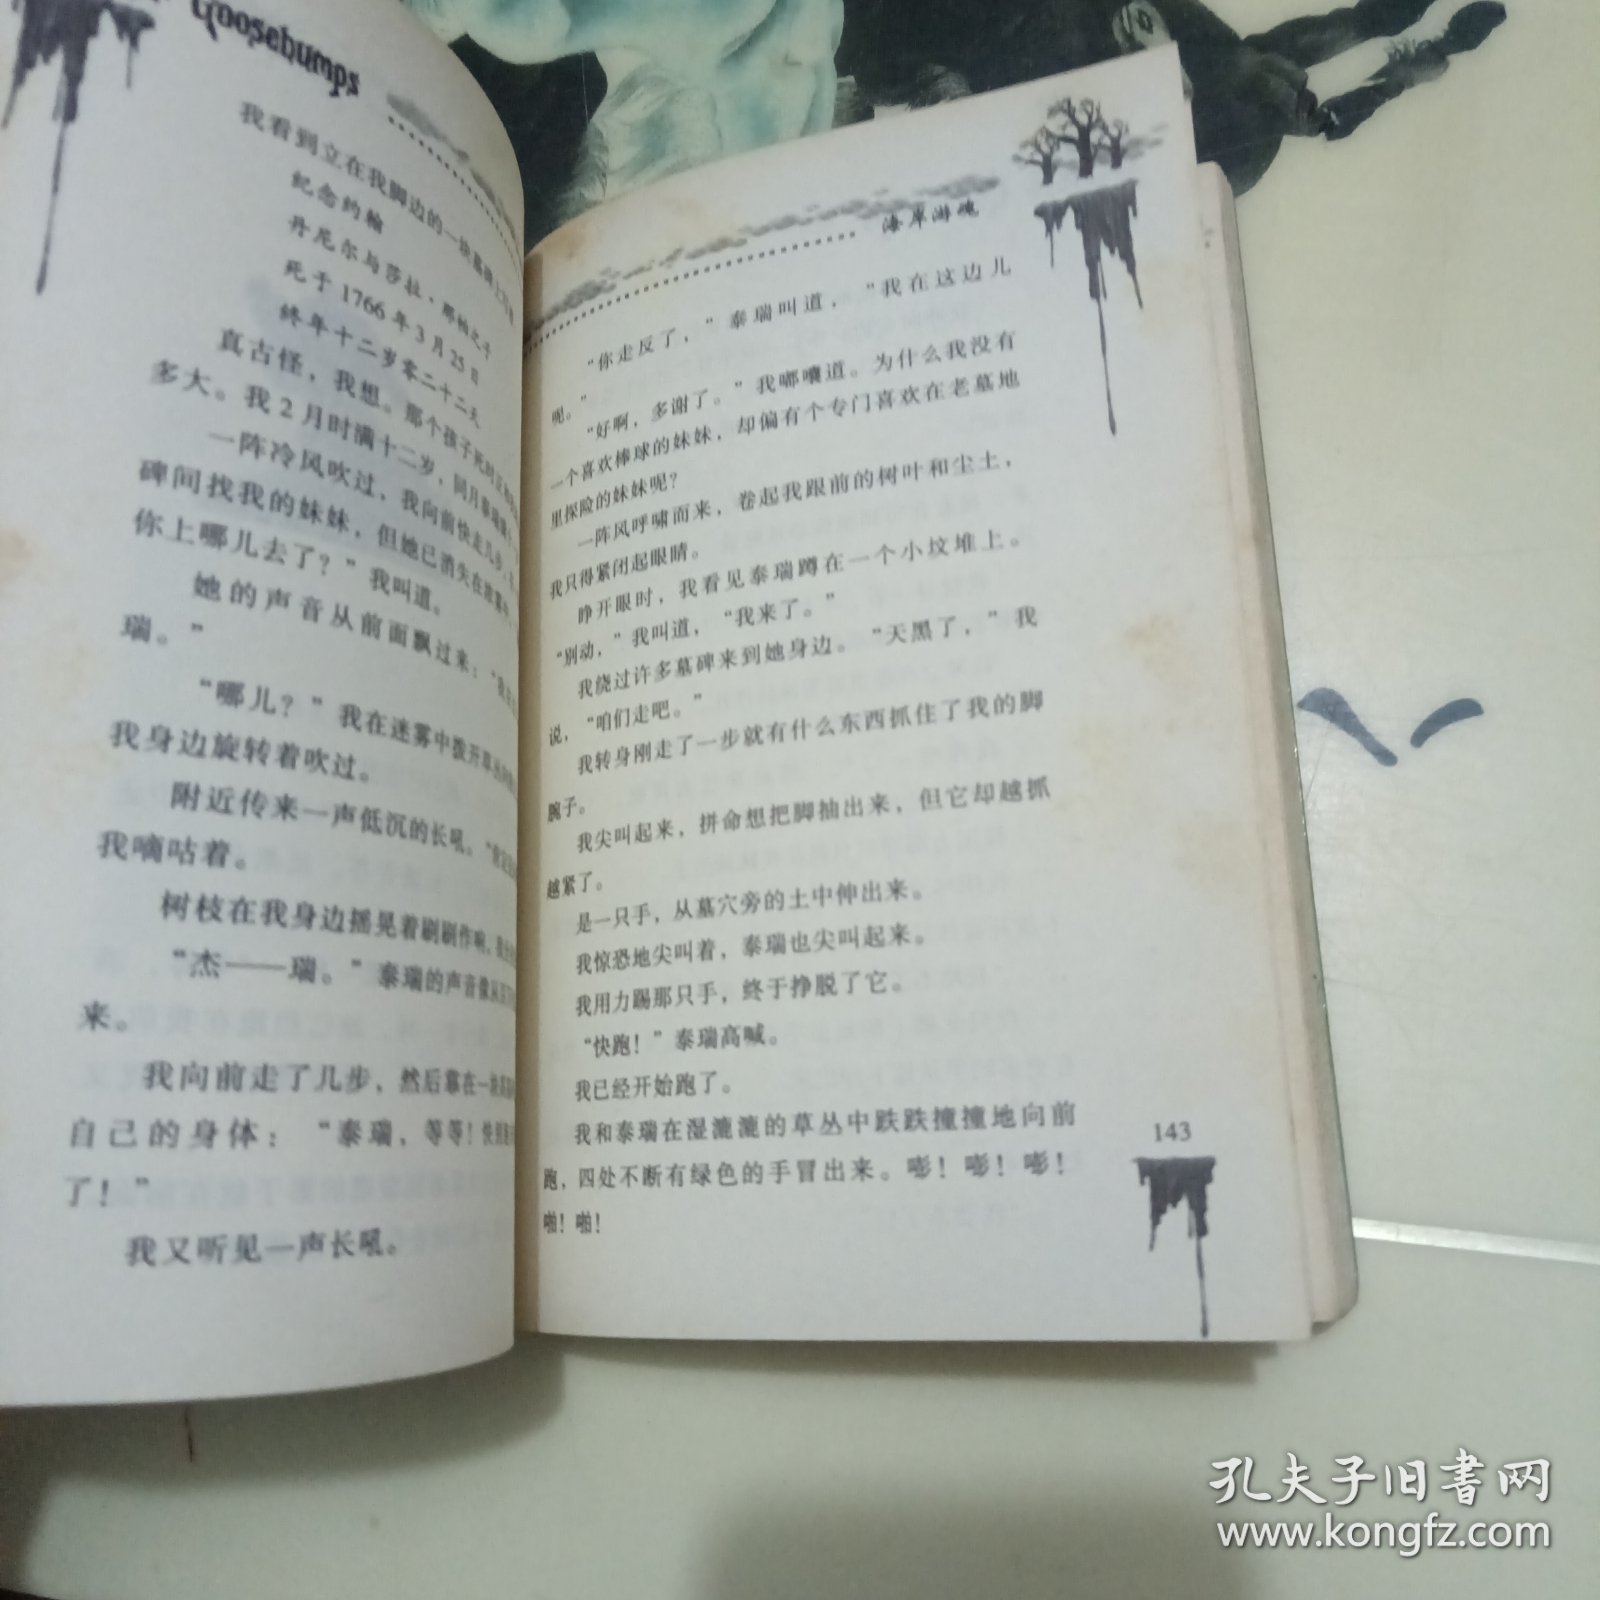 Goosebumps
我看到立在我脚边的一块墓碑上
纪念约翰
丹尼尔与莎拉·那帕之子
死于1766年3月25日
终年十二岁零二十二天
真古怪，我想。那个孩子死时正
多大。我2月时满十二岁，同月泰瑞
一阵冷风吹过，我向前快走几步，
碑间找我的妹妹，但她已消失在迷雾中
你上哪儿去了？”我叫道。
她的声音从前面飘过来：“我在
瑞。”
“哪儿？”我在迷雾中拨开草丛
我身边旋转着吹过。
附近传来一声低沉的长吼。“肯定
我嘀咕着。
树枝在我身边摇晃着刷刷作响，
“杰——瑞。”泰瑞的声音像从
来。
我向前走了几步，然后靠在一块
自己的身体：“泰瑞，等等！快别
了！”
我又听见一声长吼。
海岸游魂
“你走反了，”泰瑞叫道，“我在这边儿
呢。”
“好啊，多谢了。”我嘟囔道。为什么我没有
一个喜欢棒球的妹妹，却偏有个专门喜欢在老墓地
里探险的妹妹呢？
一阵风呼啸而来，卷起我跟前的树叶和尘土，
我只得紧闭起眼睛。
睁开眼时，我看见泰瑞蹲在一个小坟堆上。
“别动，”我叫道，“我来了。”
我绕过许多墓碑来到她身边。“天黑了，”我
说，“咱们走吧。”
我转身刚走了一步就有什么东西抓住了我的脚
腕子。
我尖叫起来，拼命想把脚抽出来，但它却越抓
越紧了。
是一只手，从墓穴旁的土中伸出来。
我惊恐地尖叫着，泰瑞也尖叫起来。
我用力踢那只手，终于挣脱了它。
“快跑！”泰瑞高喊。
我已经开始跑了。
我和泰瑞在湿漉漉的草丛中跌跌撞撞地向前
跑，四处不断有绿色的手冒出来。嘭！嘭！嘭！
啪！啪！
143
孔夫子旧书网
www.kongfz.com